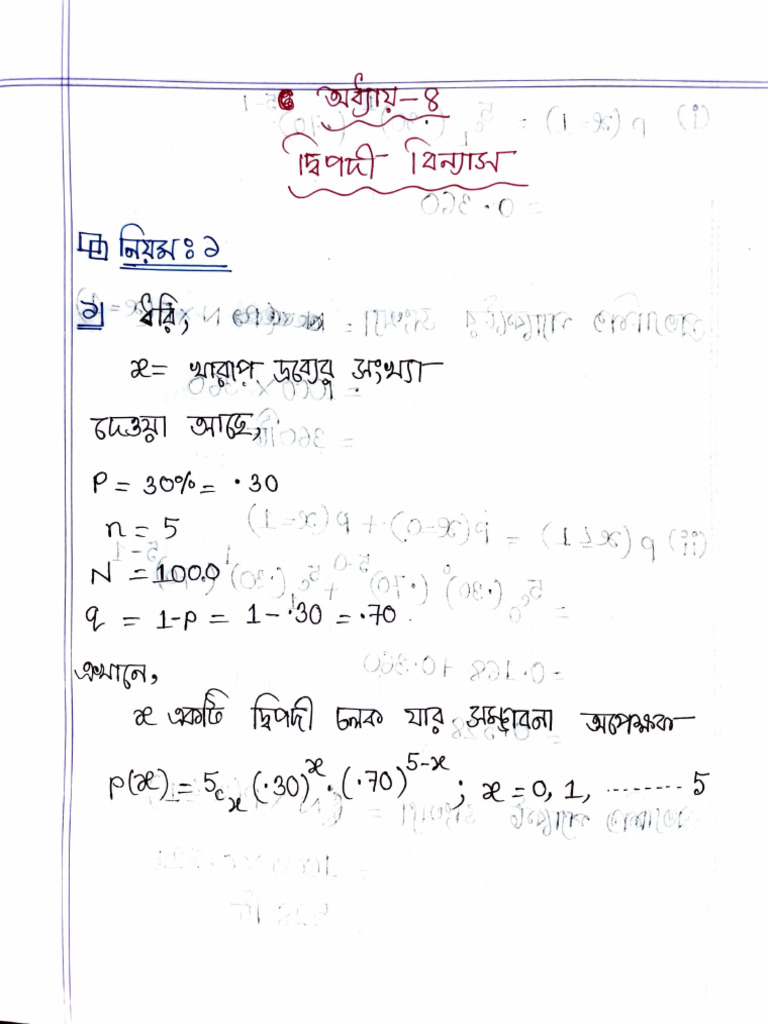 অধ্যায়-৪
দ্বিপদী বিন্যাস
নিয়মঃ ১
১) ধরি,
x = খারাপ দ্রব্যের সংখ্যা
দেওয়া আছে,
P = 30% = ·30
n = 5
N = 1000
q = 1-P = 1-·30 = ·70
এখানে,
x একটি দ্বিপদী চলক যার সম্ভাবনা অপেক্ষক
P(x) = 5cₓ (·30)ˣ · (·70)⁵⁻ˣ ; x = 0, 1, ........ 5